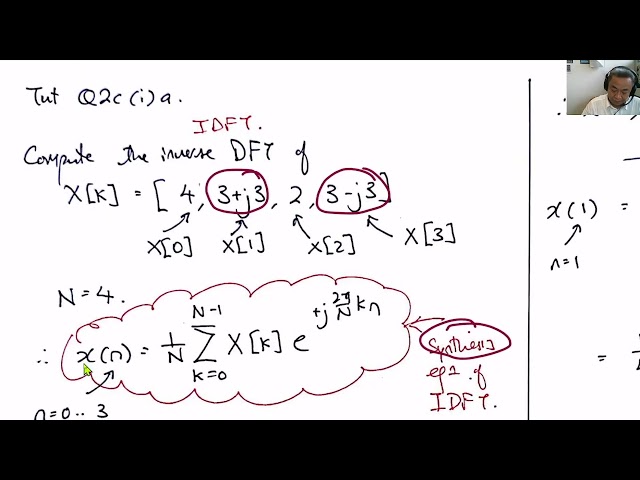 Tut Q2c(i)a.
IDFT.
Compute the inverse DFT of
X[k] = [4, 3+j3, 2, 3-j3]
X[0] X[1] X[2] X[3]
N=4.
∴ x(n) = 1/N ∑_{k=0}^{N-1} X[k] e^{+j 2π/N kn}
n=0..3
Synthesis
eqn of
IDFT.
x(1) =
n=1
=